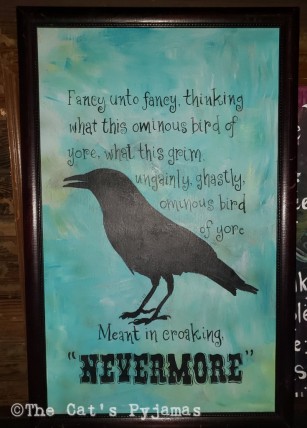 Fancy unto fancy, thinking
what this ominous bird of
yore, what this grim
ungainly, ghastly,
ominous bird
of yore
Meant in croaking,
"NEVERMORE"
©The Cat's Pyjamas